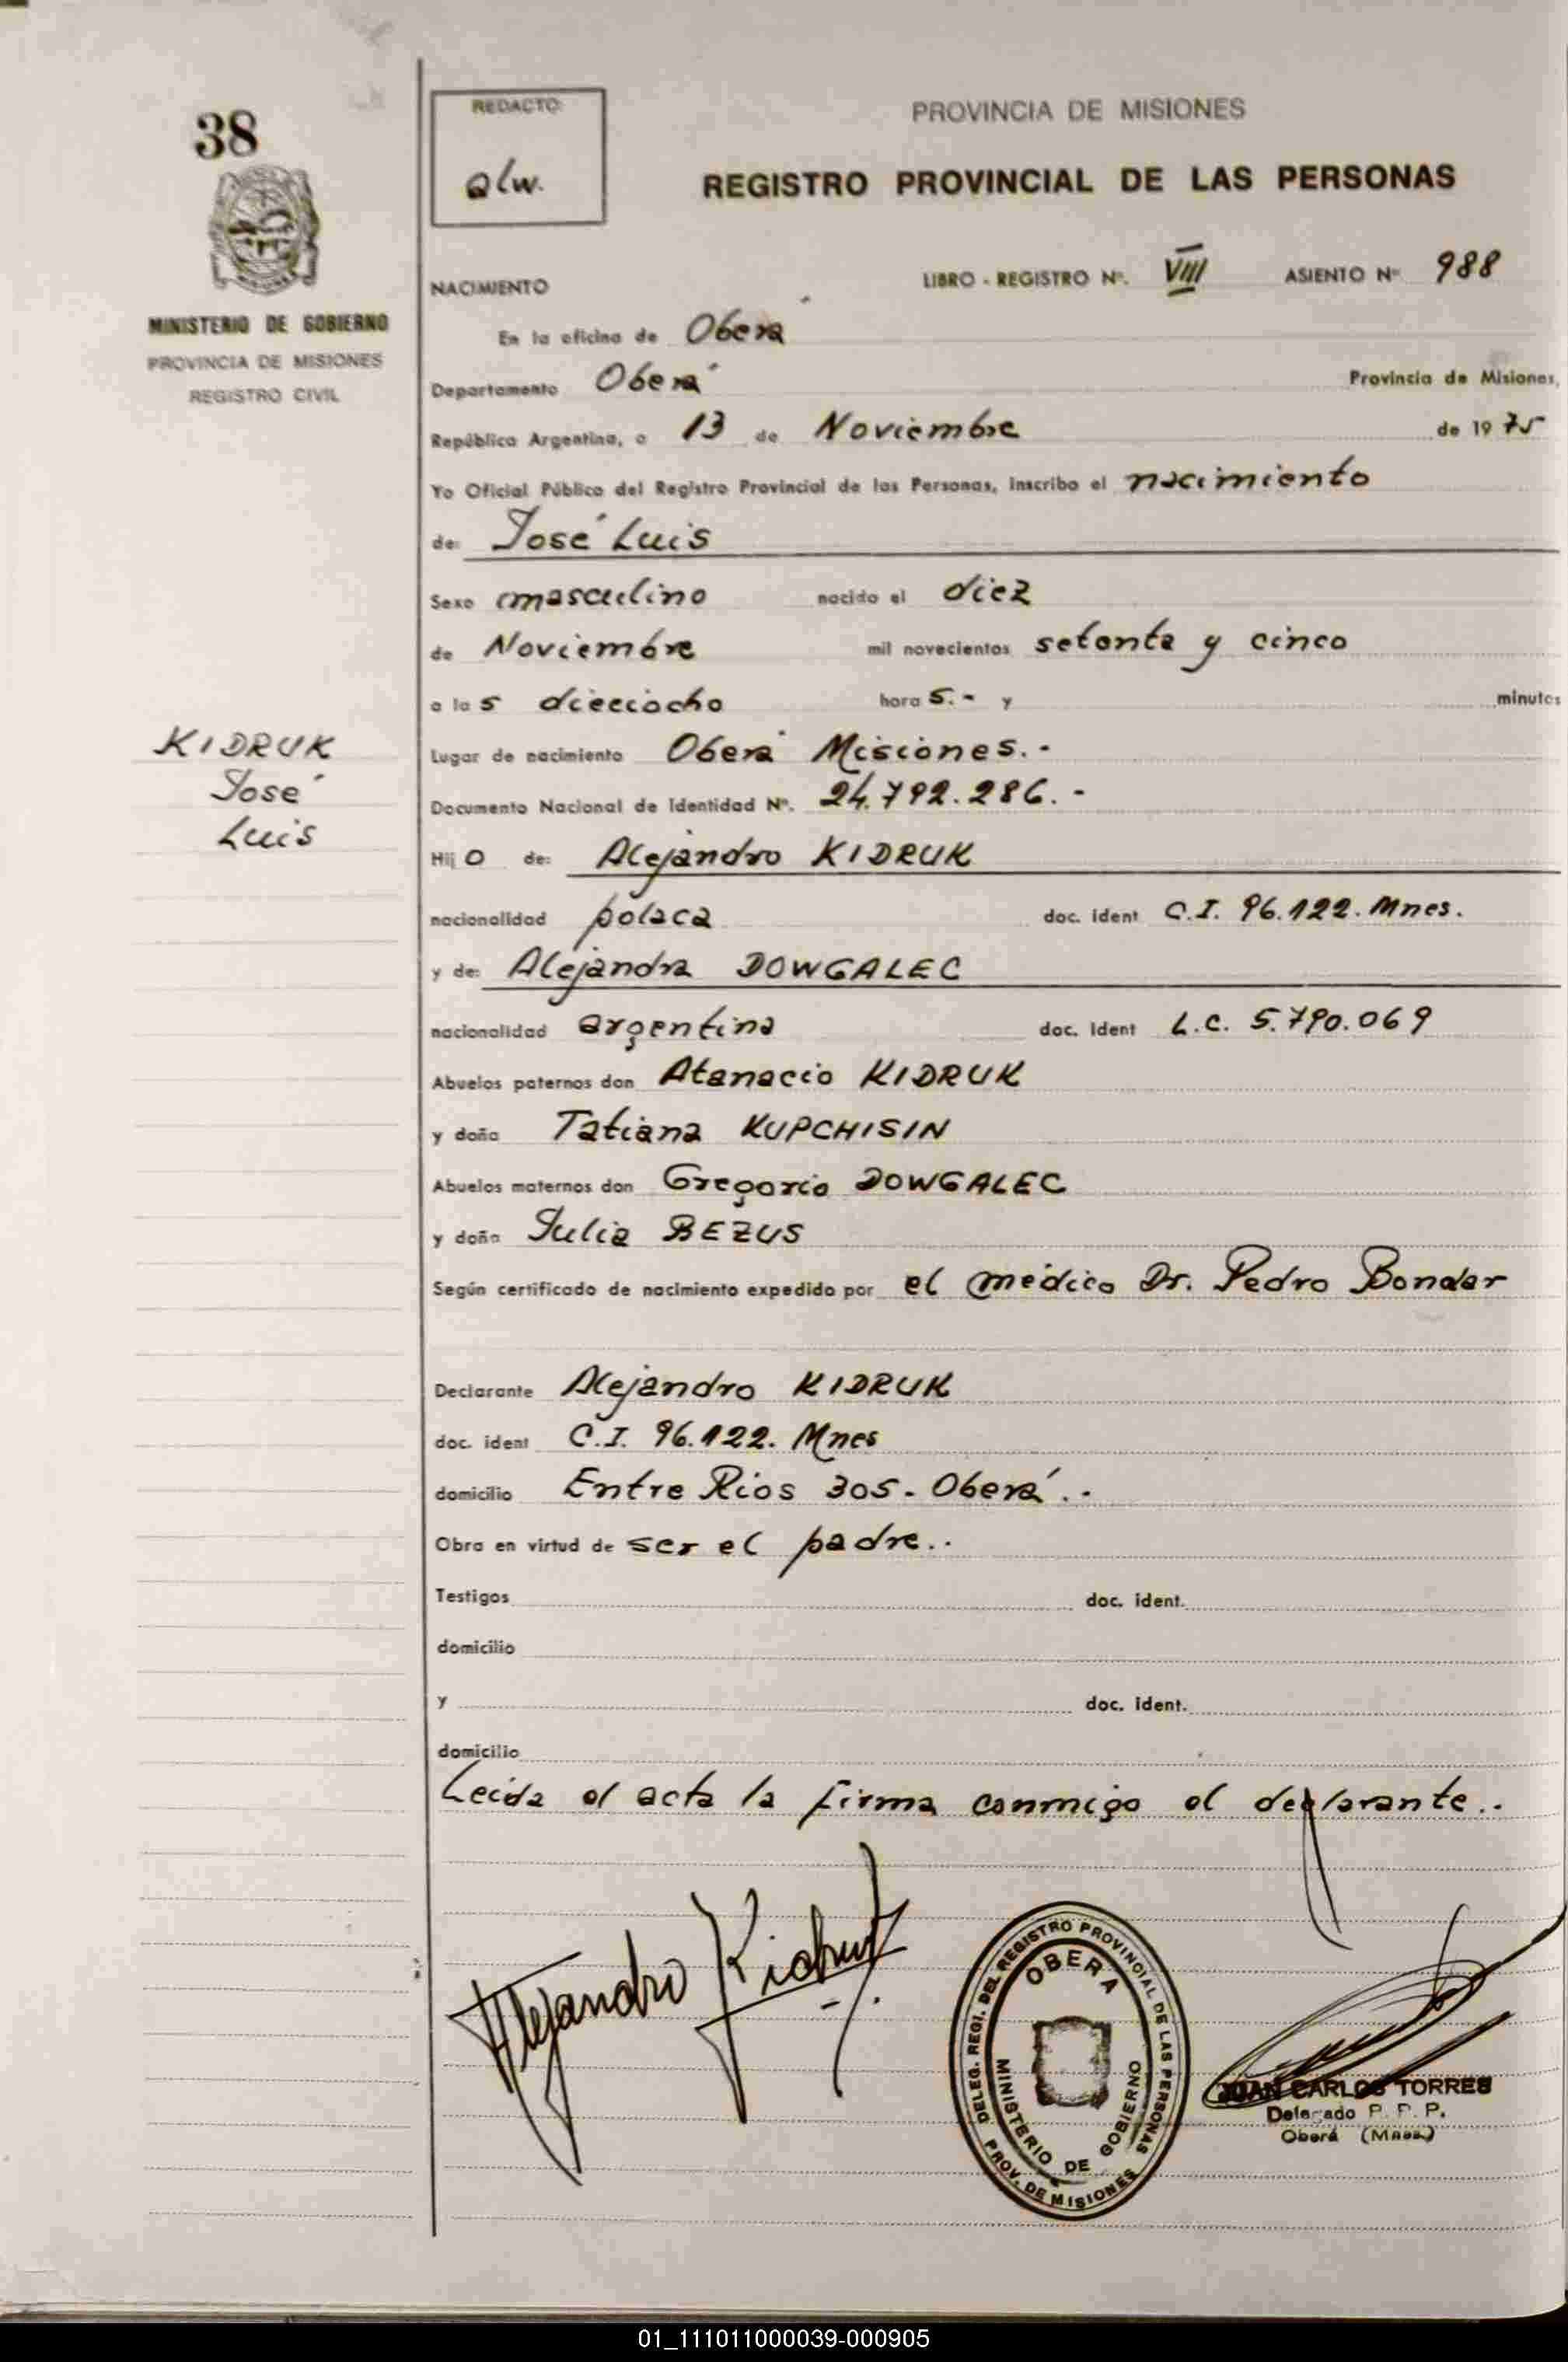 38
MINISTERIO DE GOBIERNO
PROVINCIA DE MISIONES
REGISTRO CIVIL
KIDRUK
José
Luis
REDACTO:
alw.
PROVINCIA DE MISIONES
REGISTRO PROVINCIAL DE LAS PERSONAS
NACIMIENTO LIBRO - REGISTRO Nº. VIII ASIENTO Nº 988
En la oficina de Oberá
Departamento Oberá Provincia de Misiones,
República Argentina, a 13 de Noviembre de 1975
Yo Oficial Público del Registro Provincial de las Personas, inscribo el nacimiento
de: José Luis
Sexo masculino nacido el diez
de Noviembre mil novecientos setenta y cinco
a las dieciocho horas.- y minutos
Lugar de nacimiento Oberá Misiones.-
Documento Nacional de Identidad Nº. 24.792.286.-
Hijo de: Alejandro KIDRUK
nacionalidad polaca doc. ident C.I. 96.122. Mnes.
y de: Alejandra DOWGALEC
nacionalidad argentina doc. ident L.C. 5.790.069
Abuelos paternos don Atanacio KIDRUK
y doña Tatiana KUPCHISIN
Abuelos maternos don Gregorio DOWGALEC
y doña Julia BEZUS
Según certificado de nacimiento expedido por el médico Dr. Pedro Bondar
Declarante Alejandro KIDRUK
doc. ident C.I. 96.122. Mnes
domicilio Entre Rios 305- Oberá.-
Obra en virtud de ser el padre..
Testigos doc. ident.
domicilio
y doc. ident.
domicilio
Leida el acta la firma conmigo el declarante..
Alejandro Kidruk
DELEG. REGI. DEL REGISTRO PROVINCIAL DE LAS PERSONAS
OBERA
MINISTERIO DE GOBIERNO
PROV. DE MISIONES
JUAN CARLOS TORRES
Delegado P. P. P.
Oberá (Mnes.)
01_111011000039-000905